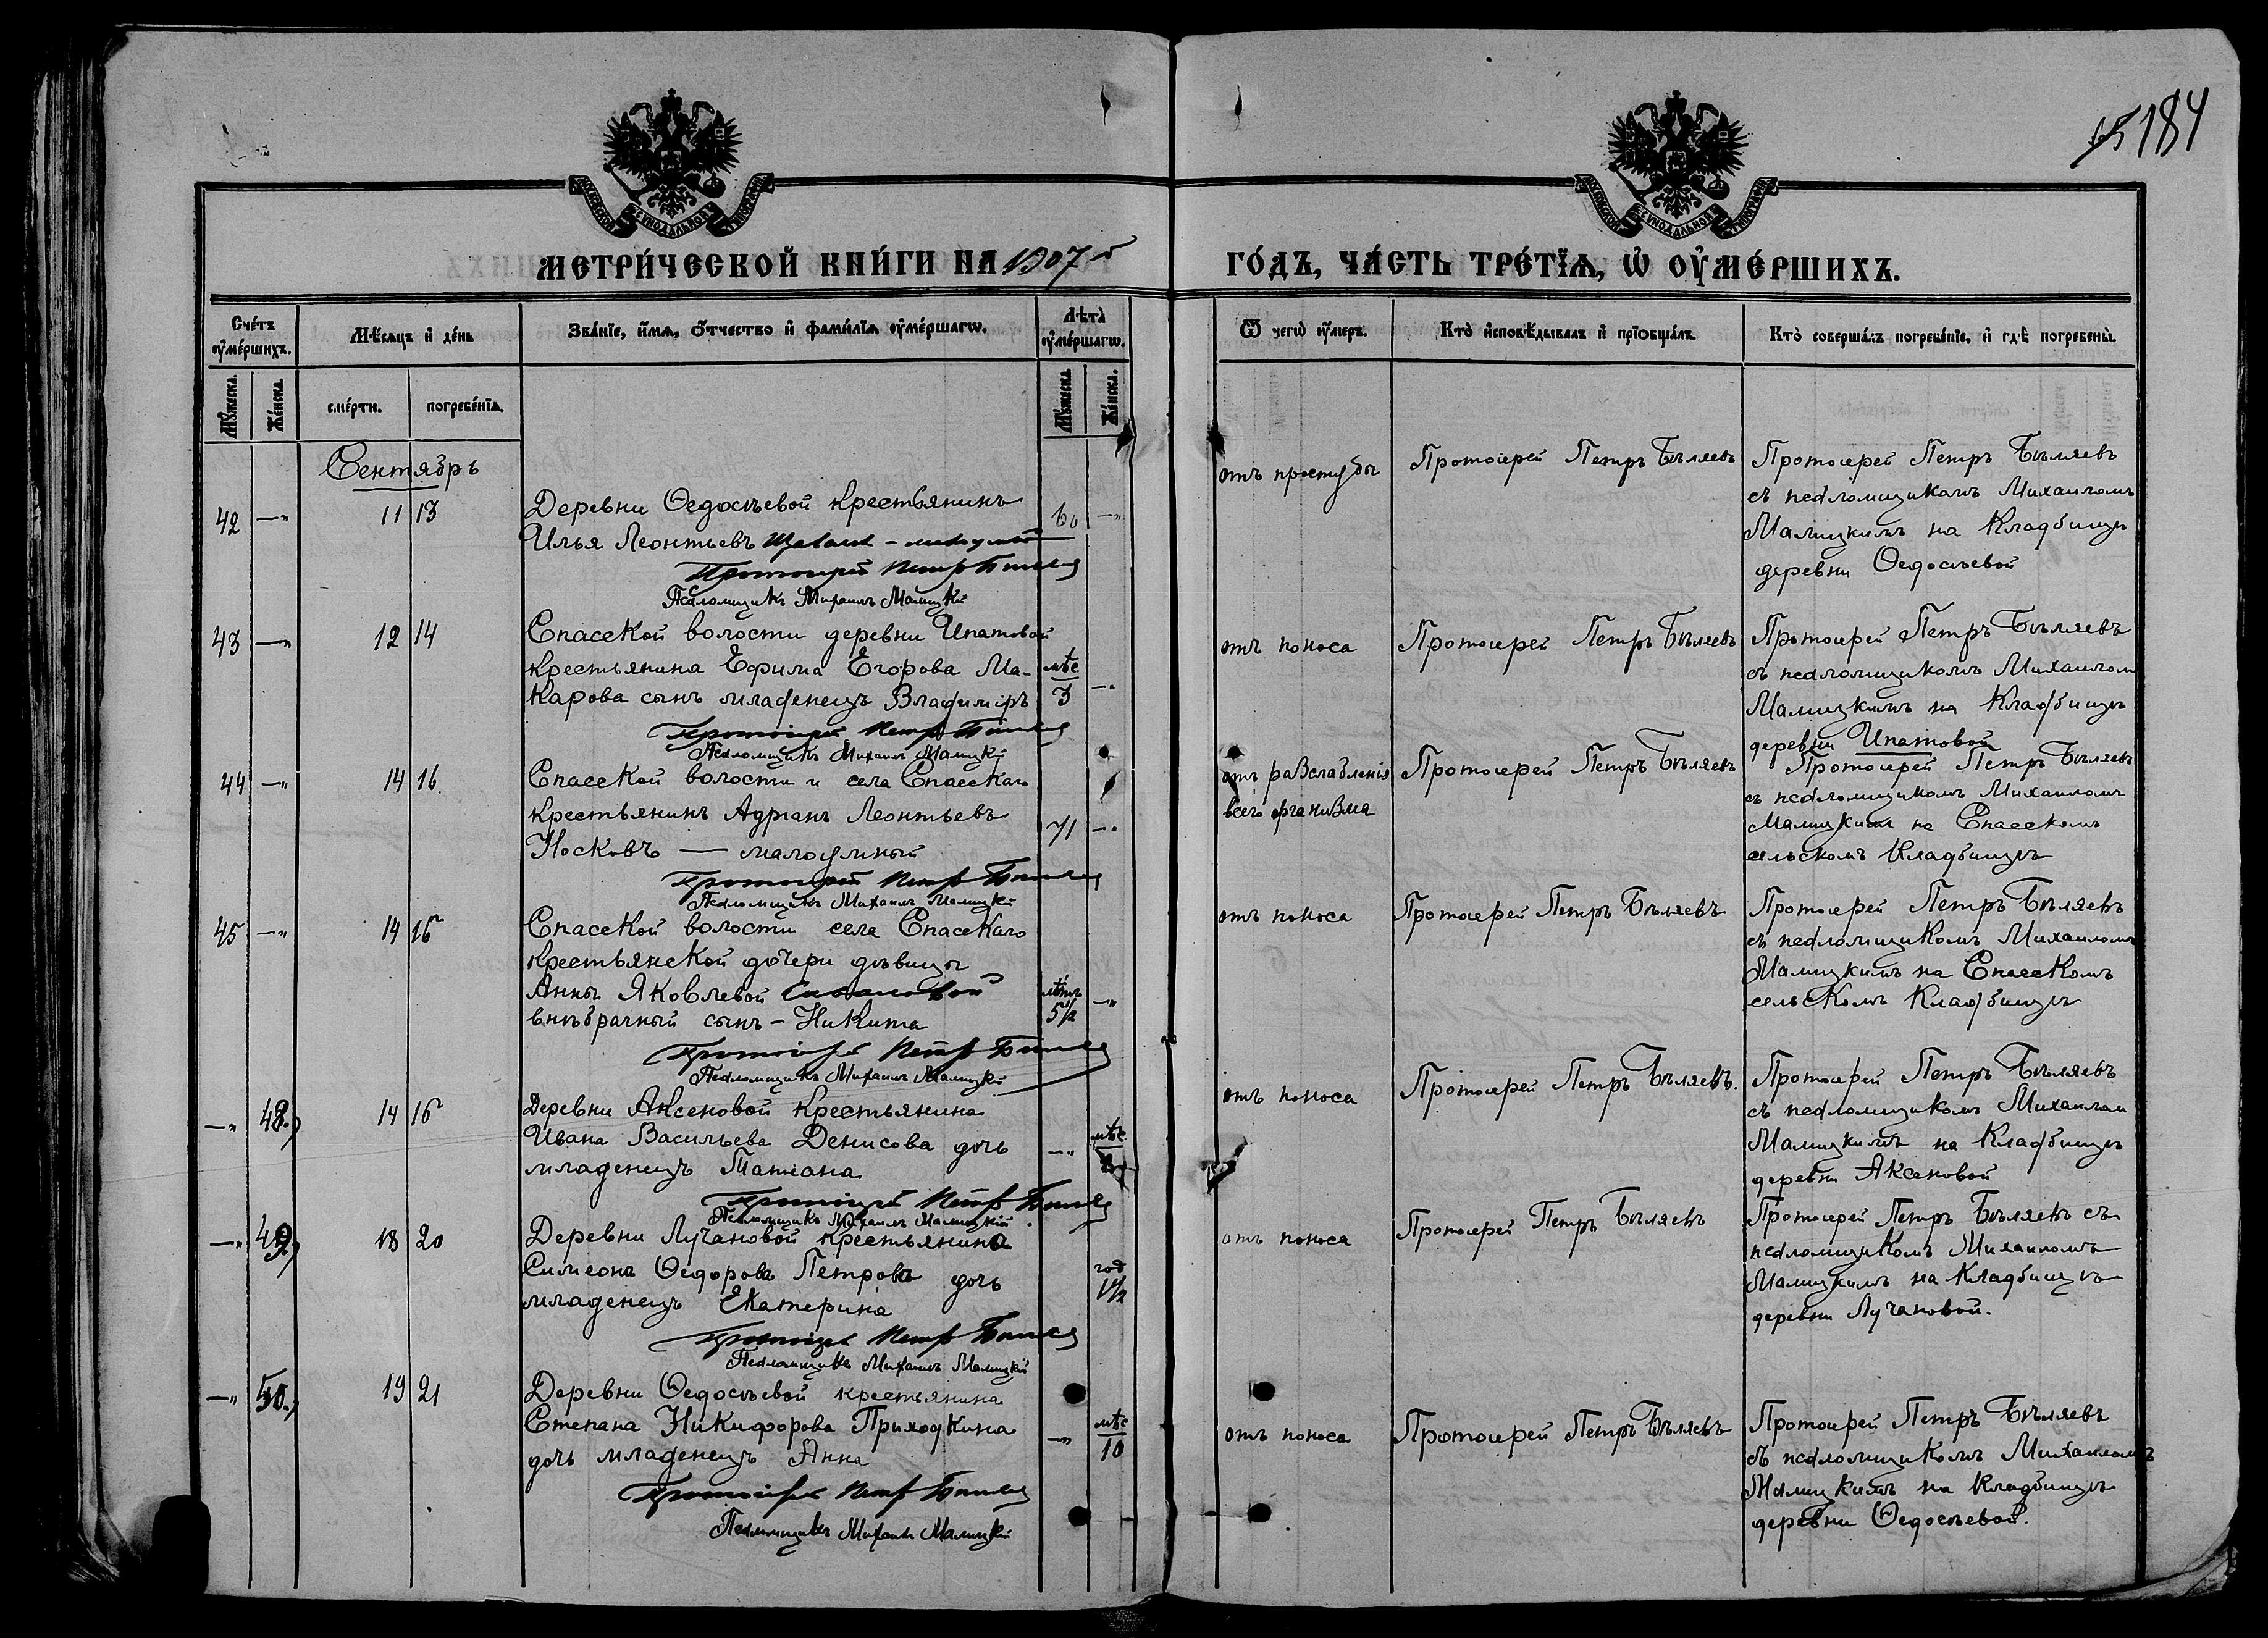 184
МОСКОВСКОЙ СѴНОДАЛЬНОЙ ТИПОГРАФІИ
МОСКОВСКОЙ СѴНОДАЛЬНОЙ ТИПОГРАФІИ
МЕТРИ́ЧЕСКОЙ КНИ́ГИ НА 1907 г
ГО́ДЪ, ЧА́СТЬ ТРЕ́ТЇѦ, Ѡ҆ ОУ҆МЕ́РШИХЪ.
Сче́тъ оу҆ме́ршихъ.
Мѣ́сяцъ и҆ де́нь
Зва́нїе, и҆́мѧ, ѻ҆́тчество и҆ фами́лїѧ оу҆ме́ршагѡ.
Лѣ́та оу҆ме́ршагѡ.
Ѿ чегѡ̀ оу҆́меръ.
Кто̀ и҆сповѣ́дывалъ и҆ прїѻбща́лъ.
Кто̀ соверша́лъ погребе́нїе, и҆ гдѣ̀ погребены̀.
Мꙋ́жеска.
Же́нска.
сме́рти.
погребе́нїѧ.
Мꙋ́жеска.
Же́нска.
Сентябрь
42 —" 11 13
Деревни Ѳедосѣевой крестьянинъ
Илья Леонтьевъ
60 —"
Протоіерей Петръ Бѣляев
Псаломщикъ Михаилъ Малицкій
отъ простуды
Протоіерей Петръ Бѣляевъ
Протоіерей Петръ Бѣляевъ
съ псаломщикомъ Михаиломъ
Малицкимъ на Кладбищѣ
деревни Ѳедосѣевой
43 —" 12 14
Спасской волости деревни Ипатовой
крестьянина Ефима Егорова Ма-
карова сынъ младенецъ Владиміръ
мѣс
3 —"
Протоіерей Петръ Бѣляев
Псаломщикъ Михаилъ Малицкій
отъ поноса
Протоіерей Петръ Бѣляевъ
Протоіерей Петръ Бѣляевъ
съ псаломщикомъ Михаиломъ
Малицкимъ на Кладбищѣ
деревни Ипатовой
44 —" 14 16.
Спасской волости и села Спасскаго
крестьянинъ Адріанъ Леонтьевъ
Носковъ — малоумный
71 —"
Протоіерей Петръ Бѣляев
Псаломщикъ Михаилъ Малицкій
отъ разслабленія
всего организма
Протоіерей Петръ Бѣляевъ
Протоіерей Петръ Бѣляевъ
съ псаломщикомъ Михаиломъ
Малицкимъ на Спасскомъ
сельскомъ Кладбищѣ
45 —" 14 16
Спасской волости села Спасскаго
крестьянской дочери дѣвицы
Анны Яковлевой
внѣбрачный сынъ – Никита
5½ —"
Протоіерей Петръ Бѣляев
Псаломщикъ Михаилъ Малицкій
отъ поноса
Протоіерей Петръ Бѣляевъ
Протоіерей Петръ Бѣляевъ
съ псаломщикомъ Михаиломъ
Малицкимъ на Спасскомъ
сельскомъ Кладбищѣ
—" 48. 14 16
Деревни Аксеновой Крестьянина
Ивана Васильева Денисова дочь
младенецъ Татіана
—" мѣс
Протоіерей Петръ Бѣляев
Псаломщикъ Михаилъ Малицкій
отъ поноса
Протоіерей Петръ Бѣляевъ.
Протоіерей Петръ Бѣляевъ
съ псаломщикомъ Михаиломъ
Малицкимъ на Кладбищѣ
деревни Аксеновой
—" 49 18 20
Деревни Лучановой крестьянина
Симеона Ѳедорова Петрова дочь
младенецъ Екатерина
год
1½
Протоіерей Петръ Бѣляев
Псаломщикъ Михаилъ Малицкій
отъ поноса
Протоіерей Петръ Бѣляевъ
Протоіерей Петръ Бѣляевъ съ
псаломщикомъ Михаиломъ
Малицкимъ на Кладбищѣ
деревни Лучановой.
—" 50. 19 21
Деревни Ѳедосѣевой крестьянина
Степана Никифорова Приходкина
дочь младенецъ Анна
—" мѣс
10
Протоіерей Петръ Бѣляев
Псаломщикъ Михаилъ Малицкій
отъ поноса
Протоіерей Петръ Бѣляевъ
Протоіерей Петръ Бѣляевъ
съ псаломщикомъ Михаиломъ
Малицкимъ на Кладбищѣ
деревни Ѳедосѣевой.